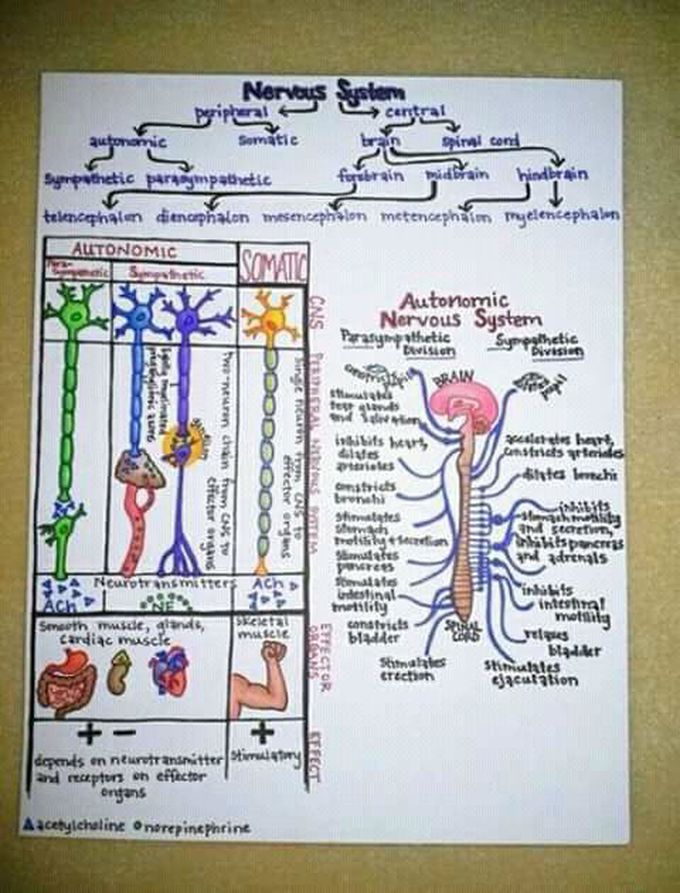 Nervous System
peripheral central
autonomic Somatic brain spinal cord
Sympathetic parasympathetic forebrain midbrain hindbrain
telencephalon diencephalon mesencephalon metencephalon myelencephalon
AUTONOMIC
Para-
Sympathetic
Sympathetic
SOMATIC
CNS
PERIPHERAL NERVOUS SYSTEM
EFFECTOR
ORGANS
EFFECT
lightly myelinated
preganglionic axons
ganglion
two-neuron chain from CNS to
effector organs
Single neuron from CNS to
effector organs
Neurotransmitters
ACh
NE
ACh
Smooth muscle, glands,
cardiac muscle
Skeletal
muscle
+ −
+
depends on neurotransmitter
and receptors on effector
organs
Stimulatory
acetylcholine norepinephrine
Autonomic
Nervous System
Parasympathetic
Division
Sympathetic
Division
constricts pupil
BRAIN
dilates
pupil
Stimulates
tear glands
and salivation
inhibits heart,
dilates
arterioles
constricts
bronchi
Stimulates
stomach
motility + secretion
Stimulates
pancreas
Stimulates
intestinal
motility
constricts
bladder
Stimulates
erection
SPINAL
CORD
accelerates heart,
constricts arterioles
dilates bronchi
inhibits
stomach motility
and secretion,
inhibits pancreas
and adrenals
inhibits
intestinal
motility
relaxes
bladder
Stimulates
ejaculation